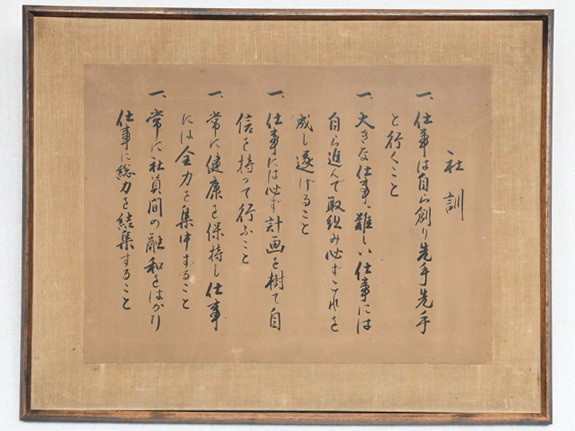 社訓
一、仕事は自ら創り先手先手
と行くこと
一、大きな仕事、難しい仕事には、
自ら進んで取組み必ずこれを
成し遂げること
一、仕事には必ず計画を樹て自
信を持って行ふこと
一、常に健康を保持し仕事
には全力を集中すること
一、常に社員間の融和をはかり
仕事に総力を結集すること